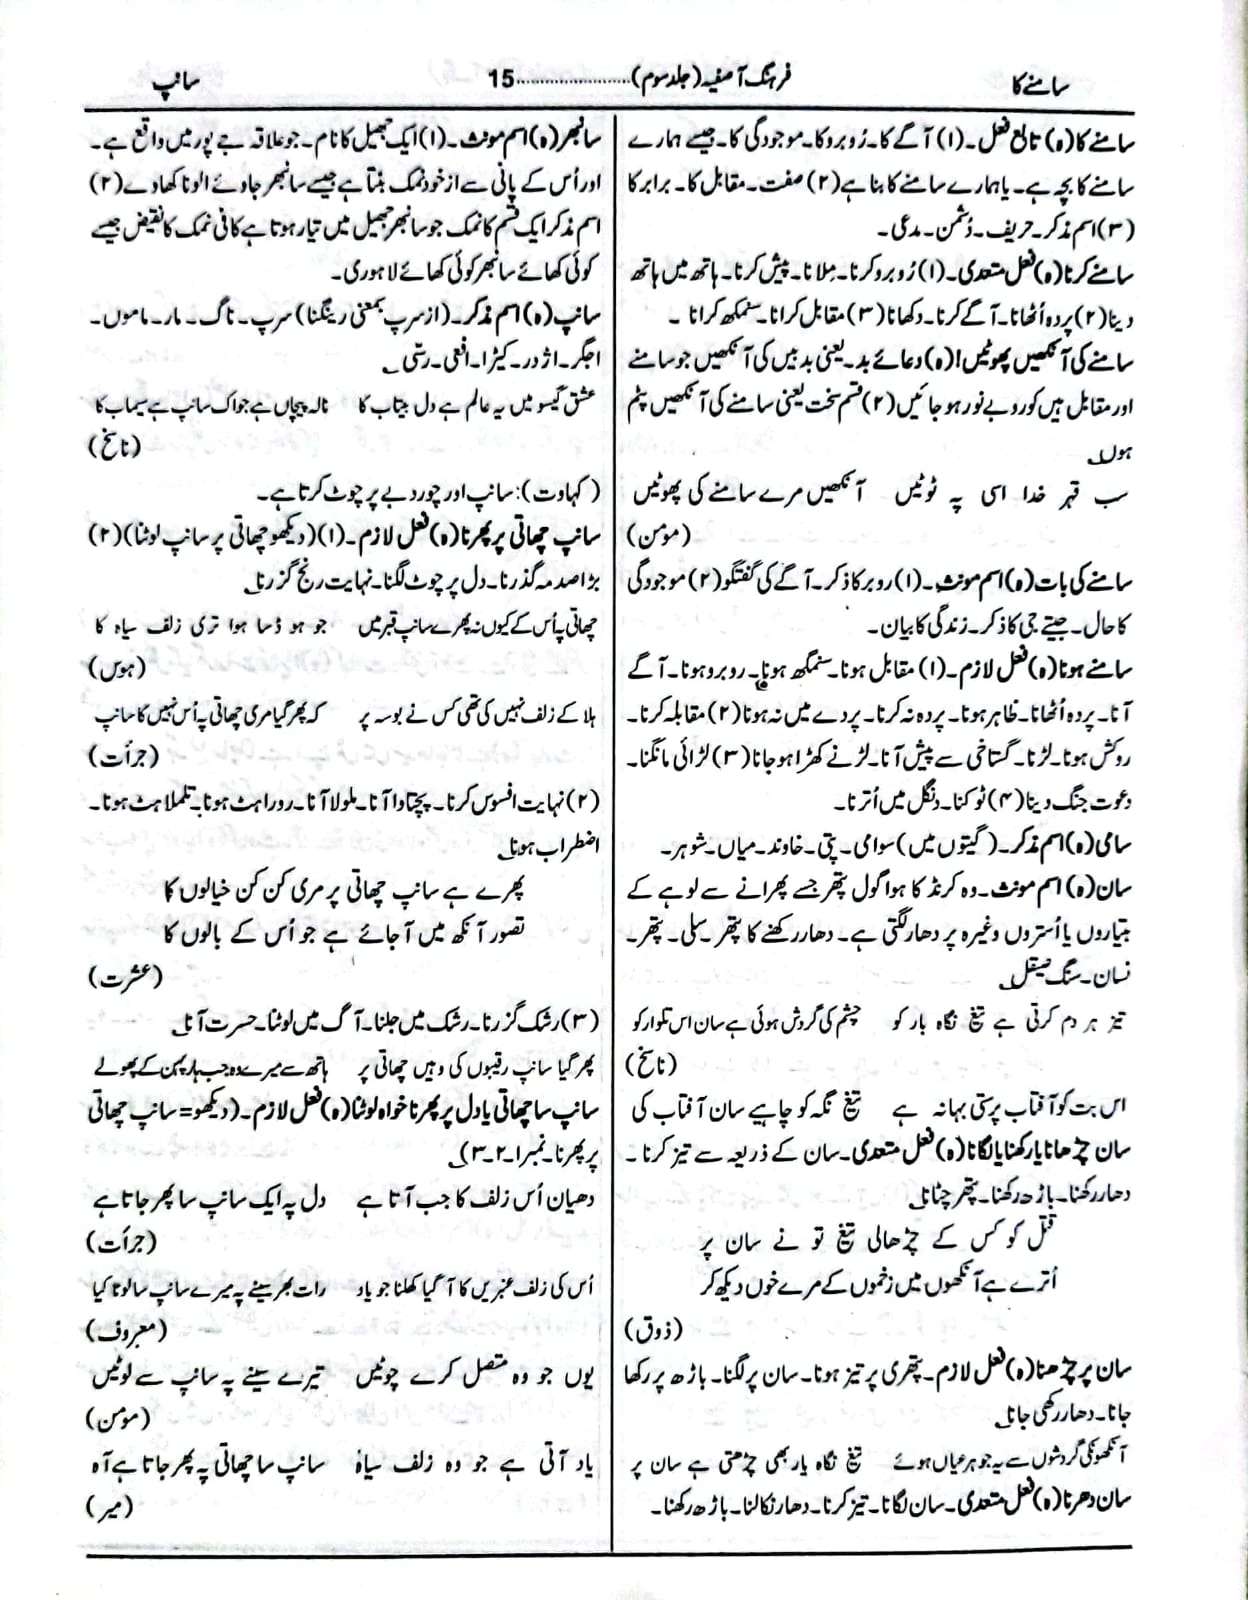 سامنے کا
فرہنگ آصفیہ (جلد سوم)........................15
سانپ
سامنے کا (ہ) تابع فعل۔ (۱) آگے کا۔ رُوبرو کا۔ موجودگی کا۔ جیسے ہمارے
سامنے کا بچہ ہے۔ یا ہمارے سامنے کا بنا ہے (۲) صفت۔ مقابل کا۔ برابر کا
(۳) اسم مذکر۔ حریف۔ دُشمن۔ مدعی۔
سامنے کرنا (ہ) فعل متعدی۔ (۱) رُوبرو کرنا۔ مِلانا۔ پیش کرنا۔ ہاتھ میں ہاتھ
دینا (۲) پردہ اُٹھانا۔ آگے کرنا۔ دکھانا (۳) مقابل کرانا۔ سنمکھ کرانا۔
سامنے کی آنکھیں پھوٹیں! (ہ) دعائے بد۔ یعنی بد بیں کی آنکھیں جو سامنے
اور مقابل ہیں کور و بے نور ہو جائیں (۲) قسم سخت یعنی سامنے کی آنکھیں پٹم
ہوں
سب قہر خدا اسی پہ ٹوٹیں آنکھیں مرے سامنے کی پھوٹیں
(مومن)
سامنے کی بات (ہ) اسم مونث۔ (۱) روبرو کا ذکر۔ آگے کی گفتگو (۲) موجودگی
کا حال۔ جیتے جی کا ذکر۔ زندگی کا بیان۔
سامنے ہونا (ہ) فعل لازم۔ (۱) مقابل ہونا۔ سنمکھ ہونا۔ روبرو ہونا۔ آگے
آنا۔ پردہ اُٹھانا۔ ظاہر ہونا۔ پردہ نہ کرنا۔ پردے میں نہ ہونا (۲) مقابلہ کرنا۔
روکش ہونا۔ لڑنا۔ گستاخی سے پیش آنا۔ لڑنے کھڑا ہو جانا (۳) لڑائی مانگنا۔
دعوت جنگ دینا (۴) ٹوکنا۔ دنگل میں اُترنا۔
سامی (ہ) اسم مذکر۔ (گیتوں میں) سوامی۔ پتی۔ خاوند۔ میاں۔ شوہر۔
سان (ہ) اسم مونث۔ وہ کرنڈ کا ہوا گول پتھر جسے پھرانے سے لوہے کے
ہتیاروں یا اُستروں وغیرہ پر دھار لگتی ہے۔ دھار رکھنے کا پتھر۔ سلی۔ پتھر۔
نسان۔ سنگ صیقل
تیز ہر دم کرتی ہے تیغ نگاہ یار کو چشم کی گردش ہوئی ہے سان اس تلوار کو
(ناسخ)
اس بت کو آفتاب پرستی بہانہ ہے تیغ نگہ کو چاہیے سان آفتاب کی
سان چڑھانا یا رکھنا یا لگانا (ہ) فعل متعدی۔ سان کے ذریعہ سے تیز کرنا۔
دھار رکھنا۔ باڑھ رکھنا۔ پتھر چٹانا
قتل کو کس کے چڑھالی تیغ تو نے سان پر
اُترے ہے آنکھوں میں زخموں کے مرے خوں دیکھ کر
(ذوق)
سان پر چڑھنا (ہ) فعل لازم۔ پتھری پر تیز ہونا۔ سان پر لگنا۔ باڑھ پر رکھا
جانا۔ دھار رکھی جانا
آنکھونکی گردشوں سے یہ جوہر عیاں ہوئے تیغ نگاہ یار بھی چڑھتی ہے سان پر
سان دھرنا (ہ) فعل متعدی۔ سان لگانا۔ تیز کرنا۔ دھار نکالنا۔ باڑھ رکھنا۔
سانبھر (ہ) اسم مونث۔ (۱) ایک جھیل کا نام۔ جو علاقہ جے پور میں واقع ہے۔
اور اُس کے پانی سے از خود نمک بنتا ہے جیسے سانبھر جاوے الونا کھاوے (۲)
اسم مذکر ایک قسم کا نمک جو سانبھر جھیل میں تیار ہوتا ہے کانی نمک کا نقیض جیسے
کوئی کھائے سانبھر کوئی کھائے لاہوری۔
سانپ (ہ) اسم مذکر۔ (از سرپ بمعنی رینگنا) سرپ۔ ناگ۔ مار۔ ماموں۔
اجگر۔ اژدر۔ کیڑا۔ افعی۔ رسّی
عشق گیسو میں یہ عالم ہے دل بیتاب کا نالہ پیچاں ہے جو اک سانپ ہے سیماب کا
(ناسخ)
(کہاوت): سانپ اور چور دبے پر چوٹ کرتا ہے۔
سانپ چھاتی پر پھرنا (ہ) فعل لازم۔ (۱) (دیکھو چھاتی پر سانپ لوٹنا) (۲)
بڑا صدمہ گذرنا۔ دل پر چوٹ لگنا۔ نہایت رنج گزرنا
چھاتی پہ اُس کے کیوں نہ پھرے سانپ قبر میں جو ہو ڈسا ہوا تری زلف سیاہ کا
(ہوس)
ہلا کے زلف نہیں کی تھی کس نے بوسہ پر کہ پھر گیا مری چھاتی پہ اُس نہیں کا سانپ
(جرأت)
(۲) نہایت افسوس کرنا۔ پچتاوا آنا۔ ملولا آنا۔ روراہٹ ہونا۔ تلملاہٹ ہونا۔
اضطراب ہونا
پھرے ہے سانپ چھاتی پر مری کن کن خیالوں کا
تصور آنکھ میں آجائے ہے جو اُس کے بالوں کا
(عشرت)
(۳) رشک گزرنا۔ رشک میں جلنا۔ آگ میں لوٹنا۔ حسرت آنا
پھر گیا سانپ رقیبوں کی وہیں چھاتی پر ہاتھ سے میرے وہ جب ہار پہن کے پھولے
سانپ سا چھاتی یا دل پر پھرنا خواہ لوٹنا (ہ) فعل لازم۔ (دیکھو=سانپ چھاتی
پر پھرنا۔ نمبر ۱۔۲۔۳)
دھیان اُس زلف کا جب آتا ہے دل پہ ایک سانپ سا پھر جاتا ہے
(جرأت)
اُس کی زلف عنبریں کا آگیا کھلنا جو یاد رات بھر سینے پہ میرے سانپ سا لوٹا کیا
(معروف)
یوں جو وہ متصل کرے چوٹیں تیرے سینے پہ سانپ سے لوٹیں
(مومن)
یاد آتی ہے جو وہ زلف سیاہ سانپ سا چھاتی پہ پھر جاتا ہے آہ
(میر)